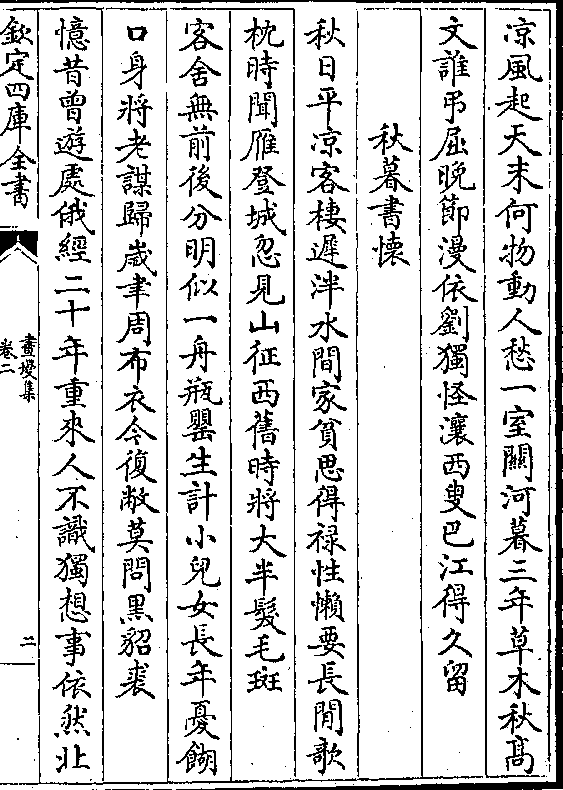 凉風起天末何物動人愁一室關河暮三年草木秋高
文誰弔屈晩節漫依劉獨怪瀼西叟巴江得久留
秋暮書懷
秋日平凉客棲遲泮水間家貧思得禄性懶要長閒歌
枕時聞雁登城忽見山征西舊時將大半髮毛斑
客舍無前後分明似一舟瓶罌生計小兒女長年憂餬
口身將老謀歸嵗聿周布衣今復敝莫問黑貂裘
憶昔曾遊處俄經二十年重來人不識獨想事依然北
欽定四庫全書
畫墁集
卷二
二